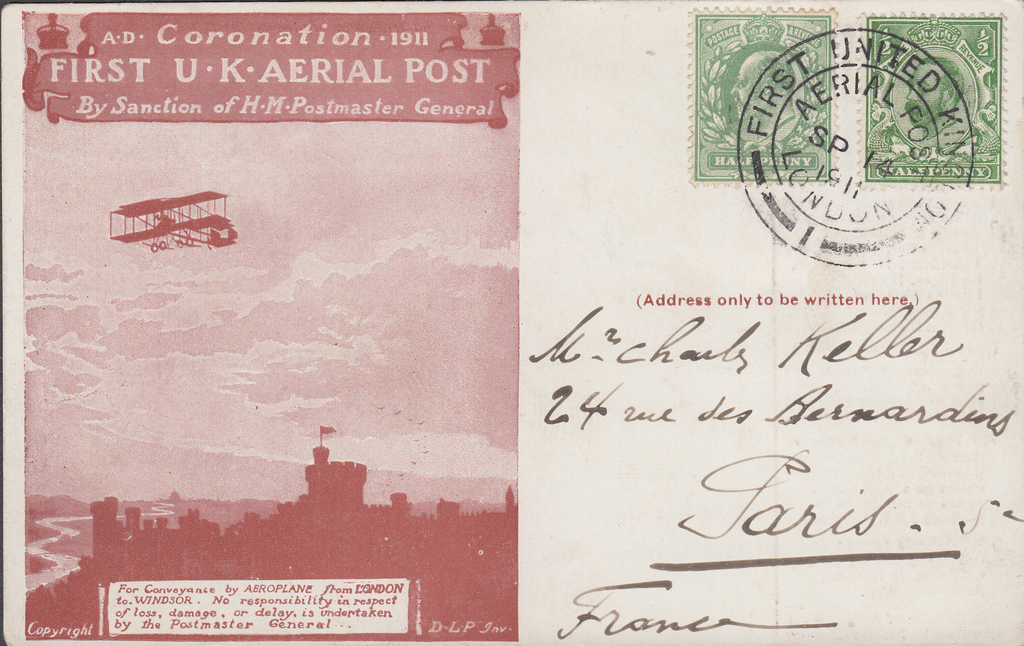 A·D· Coronation · 1911
FIRST U·K·AERIAL POST
By Sanction of H·M·Postmaster General
For Conveyance by AEROPLANE from LONDON
to WINDSOR. No responsibility in respect
of loss, damage, or delay, is undertaken
by the Postmaster General...
Copyright
D·L·P Inv.
POSTAGE REVENUE
HALFPENNY
½
REVENUE
HALFPENNY
FIRST UNITED KINGDOM
AERIAL POST
SP 14
1911
LONDON
1
(Address only to be written here.)
Mr Charly Keller
24 rue des Bernardins
Paris. 5e
France